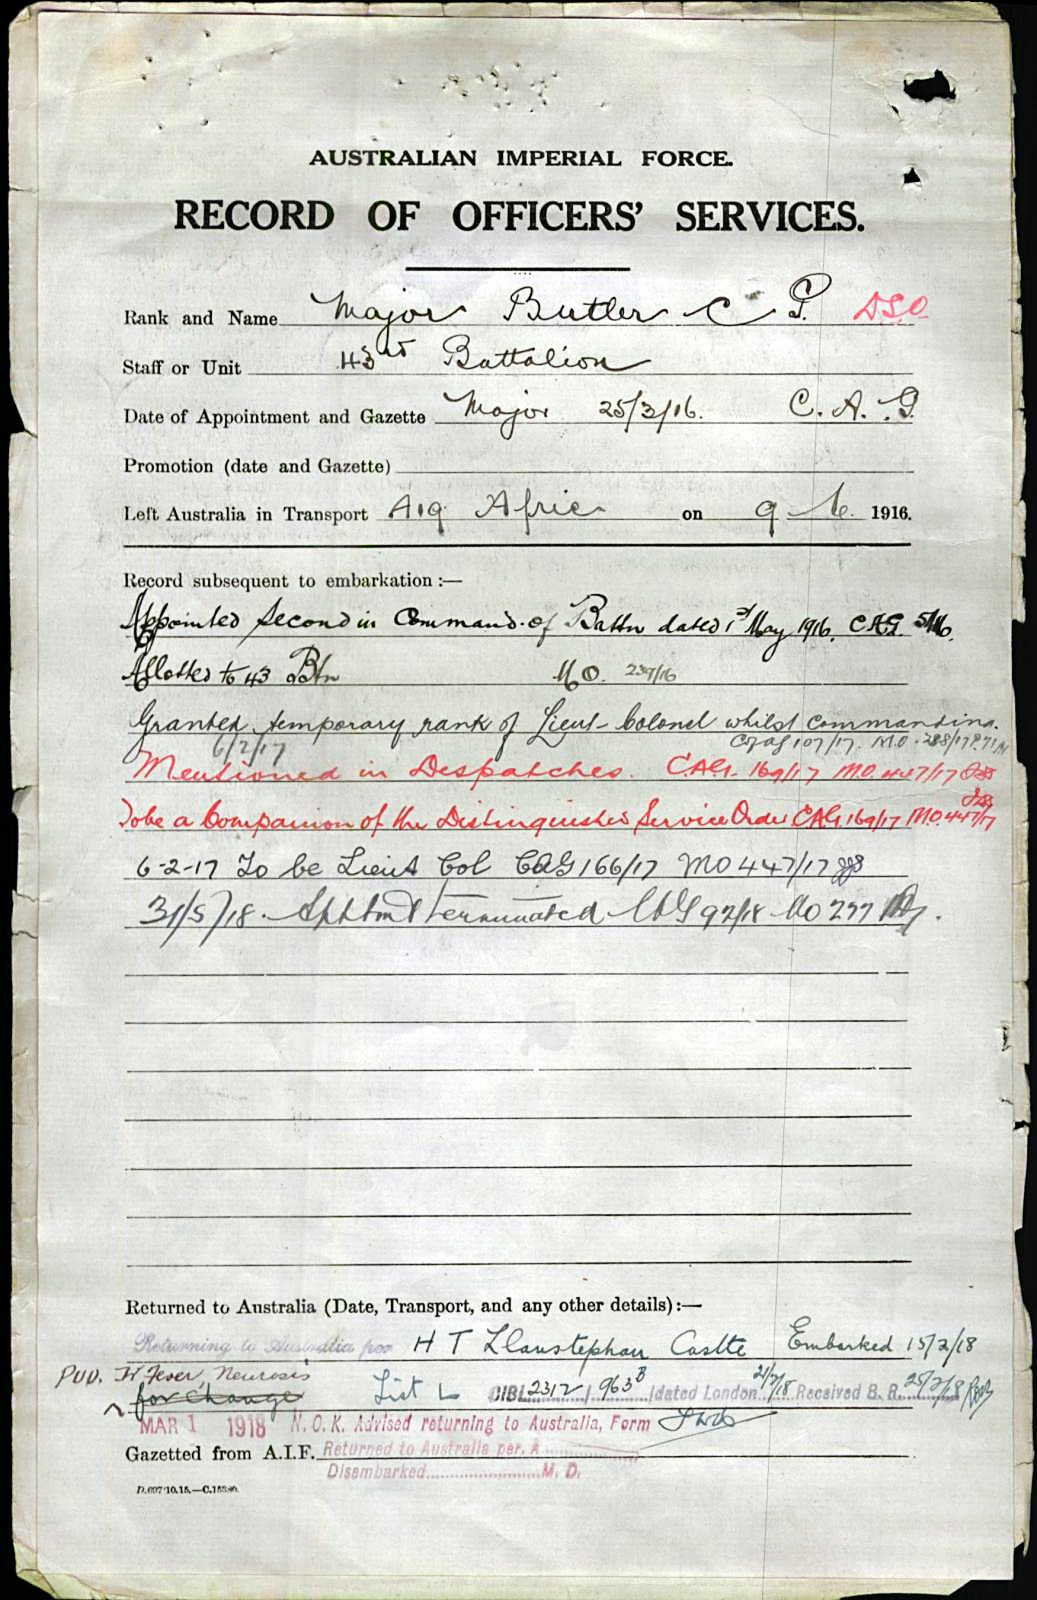 AUSTRALIAN IMPERIAL FORCE.
RECORD OF OFFICERS' SERVICES.
Rank and Name Major Butler C. P. DSO
Staff or Unit 43rd Battalion
Date of Appointment and Gazette Major 25/3/16. C. A. G.
Promotion (date and Gazette)
Left Australia in Transport A19 Afric on 9 6. 1916.
Record subsequent to embarkation :—
Appointed Second in Command of Battn dated 1st May 1916. CAG.
Allotted to 43 Btn MO. 239/16
Granted temporary rank of Lieut-Colonel whilst commanding.
6/2/17 C of AG 107/17. M.O. 288/17
Mentioned in Despatches. CAG. 169/17 MO. 447/17
To be a Companion of the Distinguished Service Order CAG. 169/17 M.O. 447/17
6-2-17 To be Lieut Col CAG 166/17 MO 447/17
31/5/18. Appointmt terminated CAG 92/18 MO 277
Returned to Australia (Date, Transport, and any other details):—
Returning to Australia per H T Llanstephan Castle Embarked 15/2/18
PUO. Tr Fever, Neurosis
for change List L CIBL 2312 / 963B / dated London 21/2/18 Received B. R. 25/2/18
MAR 1 1918 N. O. K. Advised returning to Australia, Form
Gazetted from A.I.F. Returned to Australia per. A
Disembarked M. D.